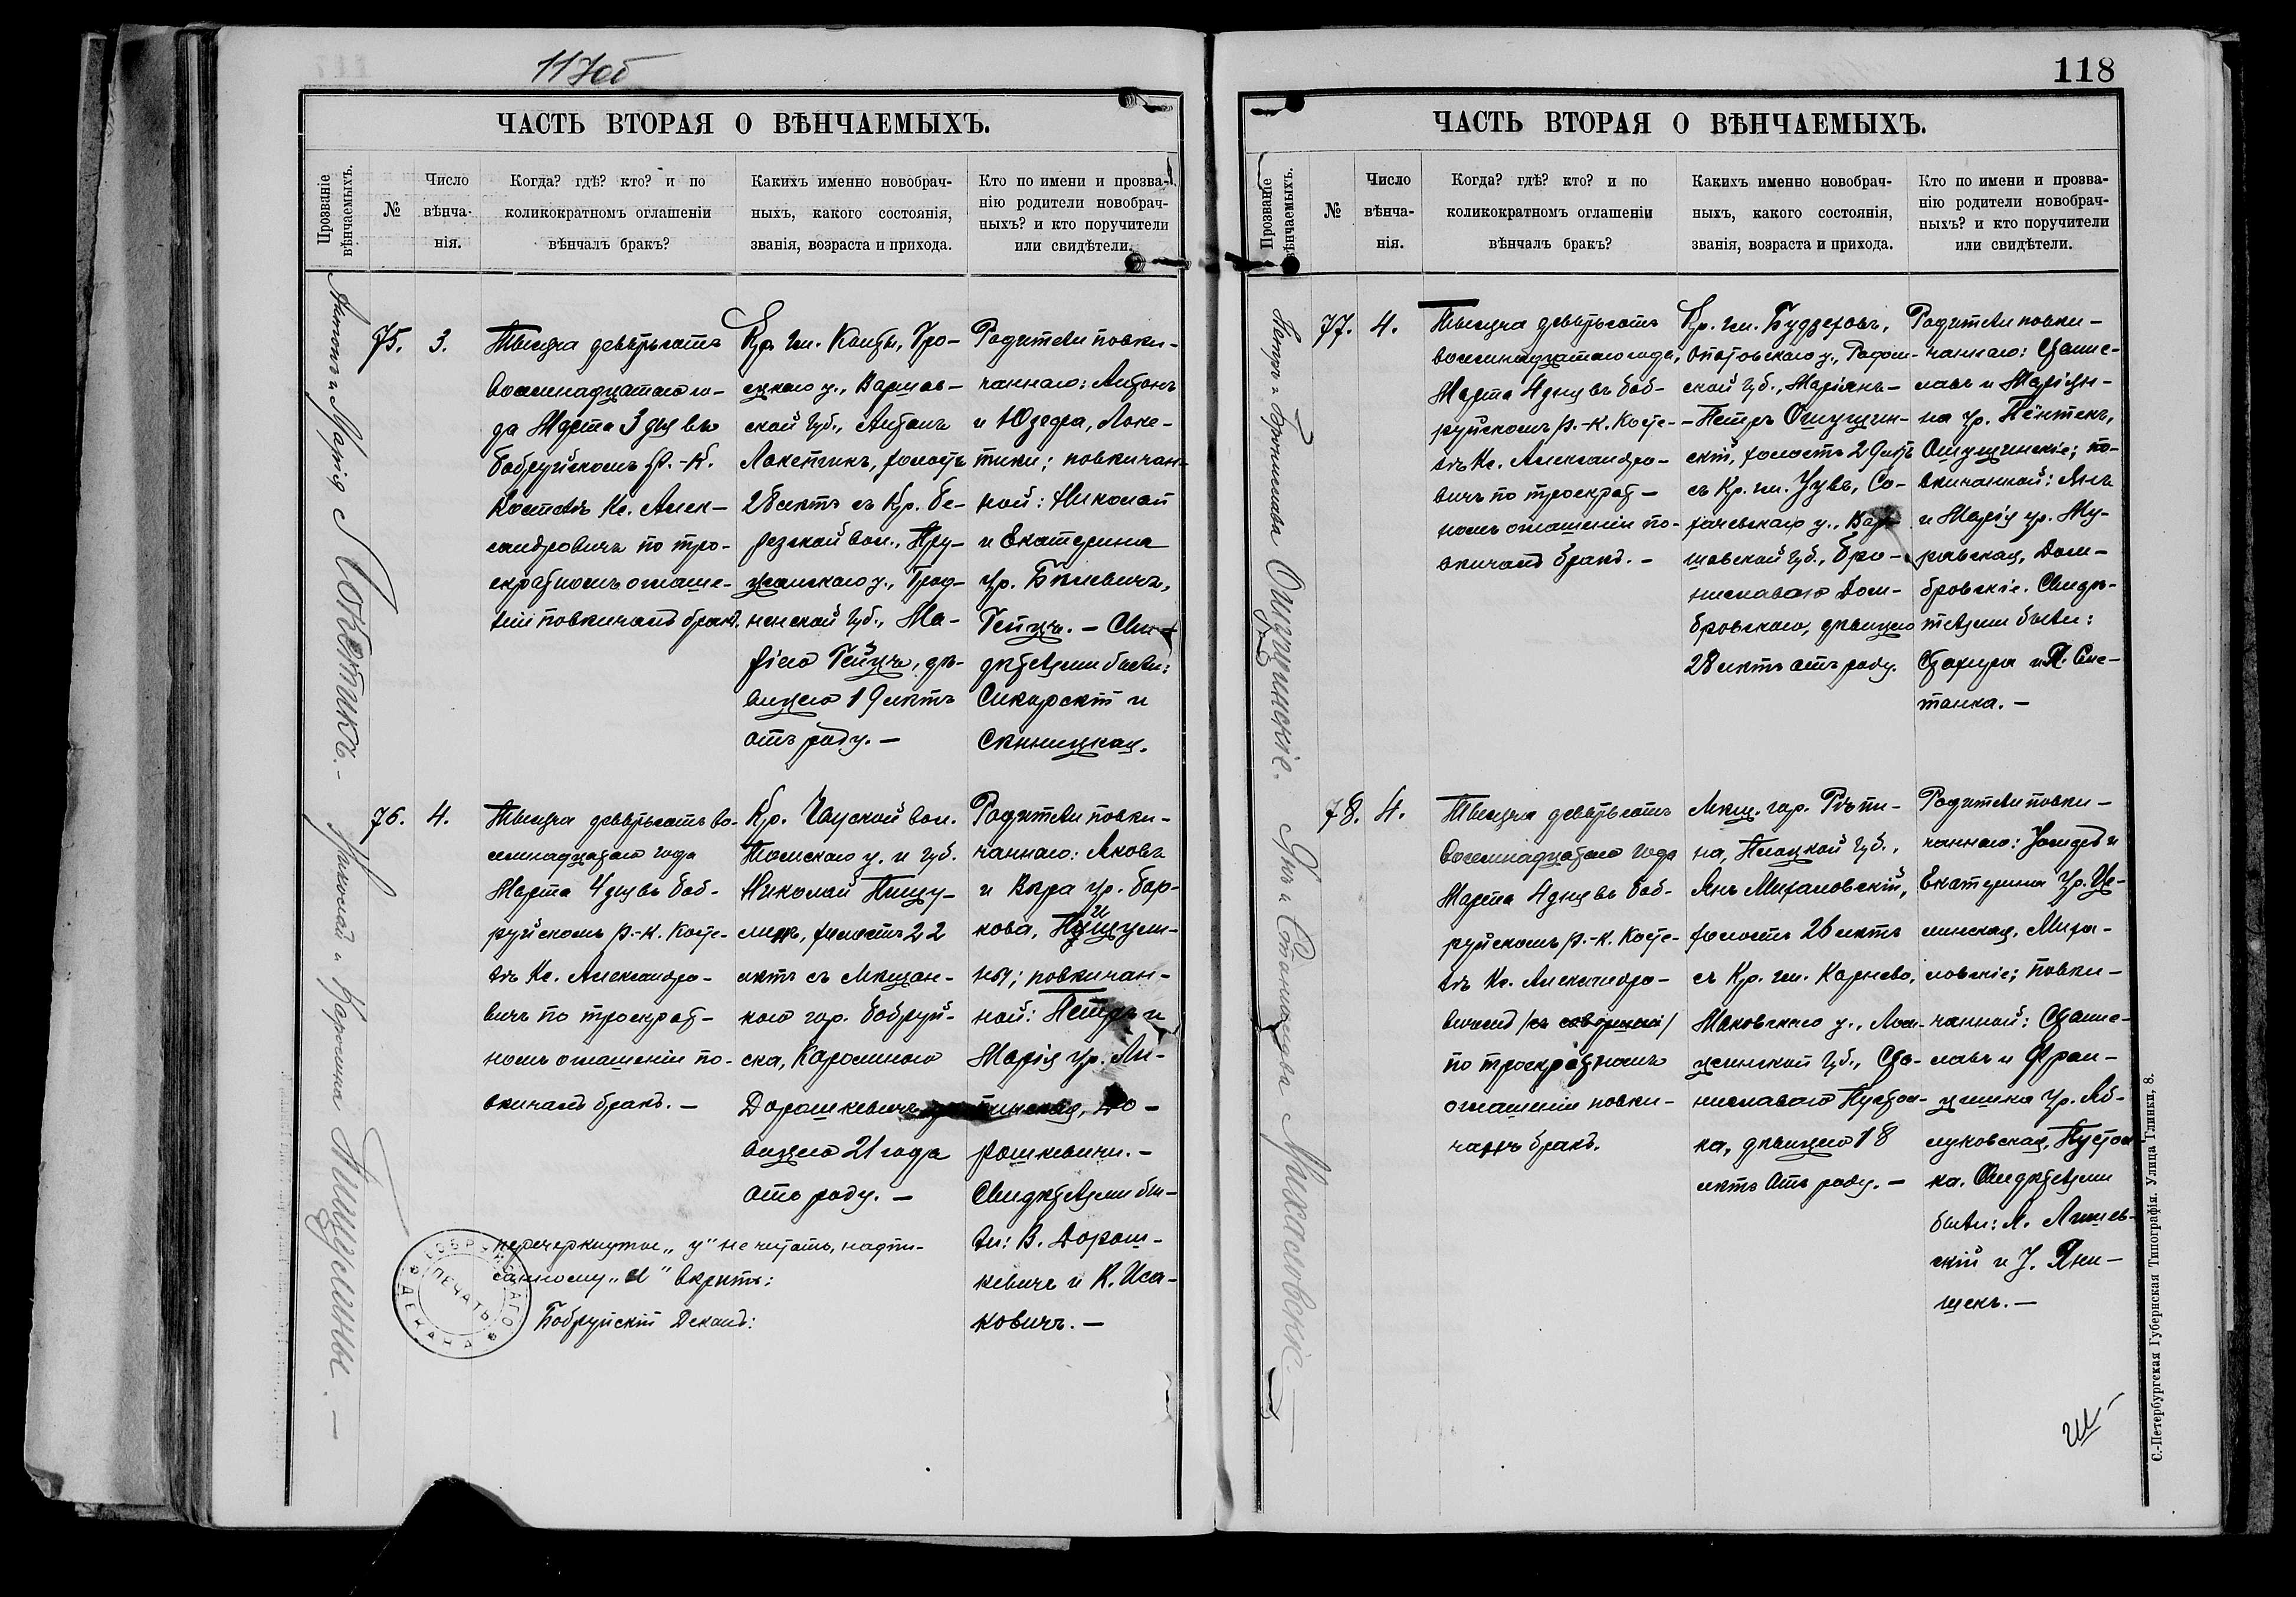 117об
ЧАСТЬ ВТОРАЯ О ВѢНЧАЕМЫХЪ.
Прозваніе
вѣнчаемыхъ.
№
Число
вѣнча-
нія.
Когда? гдѣ? кто? и по
коликократномъ оглашеніи
вѣнчалъ бракъ?
Какихъ именно новобрач-
ныхъ, какого состоянія,
званія, возраста и прихода.
Кто по имени и прозва-
нію родители новобрач-
ныхъ? и кто поручители
или свидѣтели.
Антонъ и Марія Локетикъ.-
75.
3.
Тысяча девятьсотъ
восемнадцатаго го-
да Марта 3 дня въ
Бобруйскомъ Р.-К.
Костелѣ Кс. Алек-
сандровичъ по тро-
екратномъ оглаше-
ніи повѣнчалъ бракъ.
Кр. гм. Конты, Гро-
ецкаго у., Варшав-
ской губ., Антонъ
Локетикъ, холостъ
28 лѣтъ съ Кр. Бе-
резской вол., Пру-
жанскаго у., Грод-
ненской губ., Ма-
ріею Гейцъ, дѣ-
вицею 19 лѣтъ
отъ роду. —
Родители повѣн-
чаннаго: Антонъ
и Юзефа, Локе-
тики; повѣнчан-
ной: Николай
и Екатерина
ур. Бѣлевичъ,
Гейцъ. — Сви-
дѣтелями были:
Сикорскій и
Скнницкая.
76.
4.
Николай и Каролина Пищулины. —
Тысяча девятьсотъ во-
семнадцатаго года
Марта 4 дня въ Боб-
руйскомъ р.-к. Косте-
лѣ Кс. Александро-
вичъ по троекрат-
номъ оглашеніи по-
вѣнчалъ бракъ. —
Кр. Чауской вол.
Томскаго у. и губ.
Николай Пищу-
линъ, холостъ 22
лѣтъ съ Мѣщан-
кою гор. Бобруй-
ска, Каролиною
Дорошкевичъ, дѣ-
вицею 21 года
отъ роду. —
Родители повѣн-
чаннаго: Яковъ
и Вѣра ур. Бар-
кова, Пищули-
ны; повѣнчан-
ной: Петръ и
Марія ур. Ли-
До-
рошкевичи. —
Свидѣтелями бы-
ли: В. Дорош-
кевичъ и К. Иса-
ковичъ. —
перечеркнутое „у“ не читать, надпи-
санному „и“ вѣрить:
Бобруйскій Деканъ:
БОБРУЙСКАГО ДЕКАНА
ПЕЧАТЬ
118
ЧАСТЬ ВТОРАЯ О ВѢНЧАЕМЫХЪ.
Прозваніе
вѣнчаемыхъ.
№
Число
вѣнча-
нія.
Когда? гдѣ? кто? и по
коликократномъ оглашеніи
вѣнчалъ бракъ?
Какихъ именно новобрач-
ныхъ, какого состоянія,
званія, возраста и прихода.
Кто по имени и прозва-
нію родители новобрач-
ныхъ? и кто поручители
или свидѣтели.
Петръ и Брониславa
77.
4.
Тысяча девятьсотъ
восемнадцатаго года,
Марта 4 дня въ Боб-
руйскомъ р.-к. Косте-
лѣ Кс. Александро-
вичъ по троекрат-
номъ оглашеніи по-
вѣнчалъ бракъ. —
Кр. гм. Будзеховъ,
Опатовскаго у., Радом-
ской губ., Маріянъ-
-Петръ
холостъ 29 лѣтъ
съ Кр. гм. Чувъ, Со-
хачевскаго у., Вар-
шавской губ., Бро-
ниславою Дом-
бровскою, дѣвицею
28 лѣтъ отъ роду.
Родители повѣн-
чаннаго: Стани-
славъ и Маріан-
на ур. Пёнтекъ,
по-
вѣнчанной: Янъ
и Марія ур. Му-
равская, Дом-
бровскіе. Свидѣ-
телями были:
Стахура и П. Сме-
танка. —
78.
4.
Янъ и Станислава Михаловскіе. —
Тысяча девятьсотъ
восемнадцатаго года
Марта 4 дня въ Боб-
руйскомъ р.-к. Косте-
лѣ Кс. Александро-
вичемъ
по троекратномъ
оглашеніи повѣн-
чанъ бракъ.
Мѣщ. гор. Рыпи-
на, Плоцкой губ.,
Янъ Михаловскій,
холостъ 26 лѣтъ
съ Кр. гм. Карнево,
Маковскаго у., Лом-
жинской губ., Ста-
ниславою Пустол-
ка, дѣвицею 18
лѣтъ отъ роду. —
Родители повѣн-
чаннаго: Іосифъ и
Екатерина ур. Це-
линская, Миха-
ловскіе; повѣн-
чанной: Стани-
славъ и Фран-
цишка ур. Яб-
луковская, Пустол-
ка. Свидѣтелями
были: А. Лишев-
скій и І. Яни-
щекъ. —
С.-Петербургская Губернская Типографія. Улица Глинки, 8.